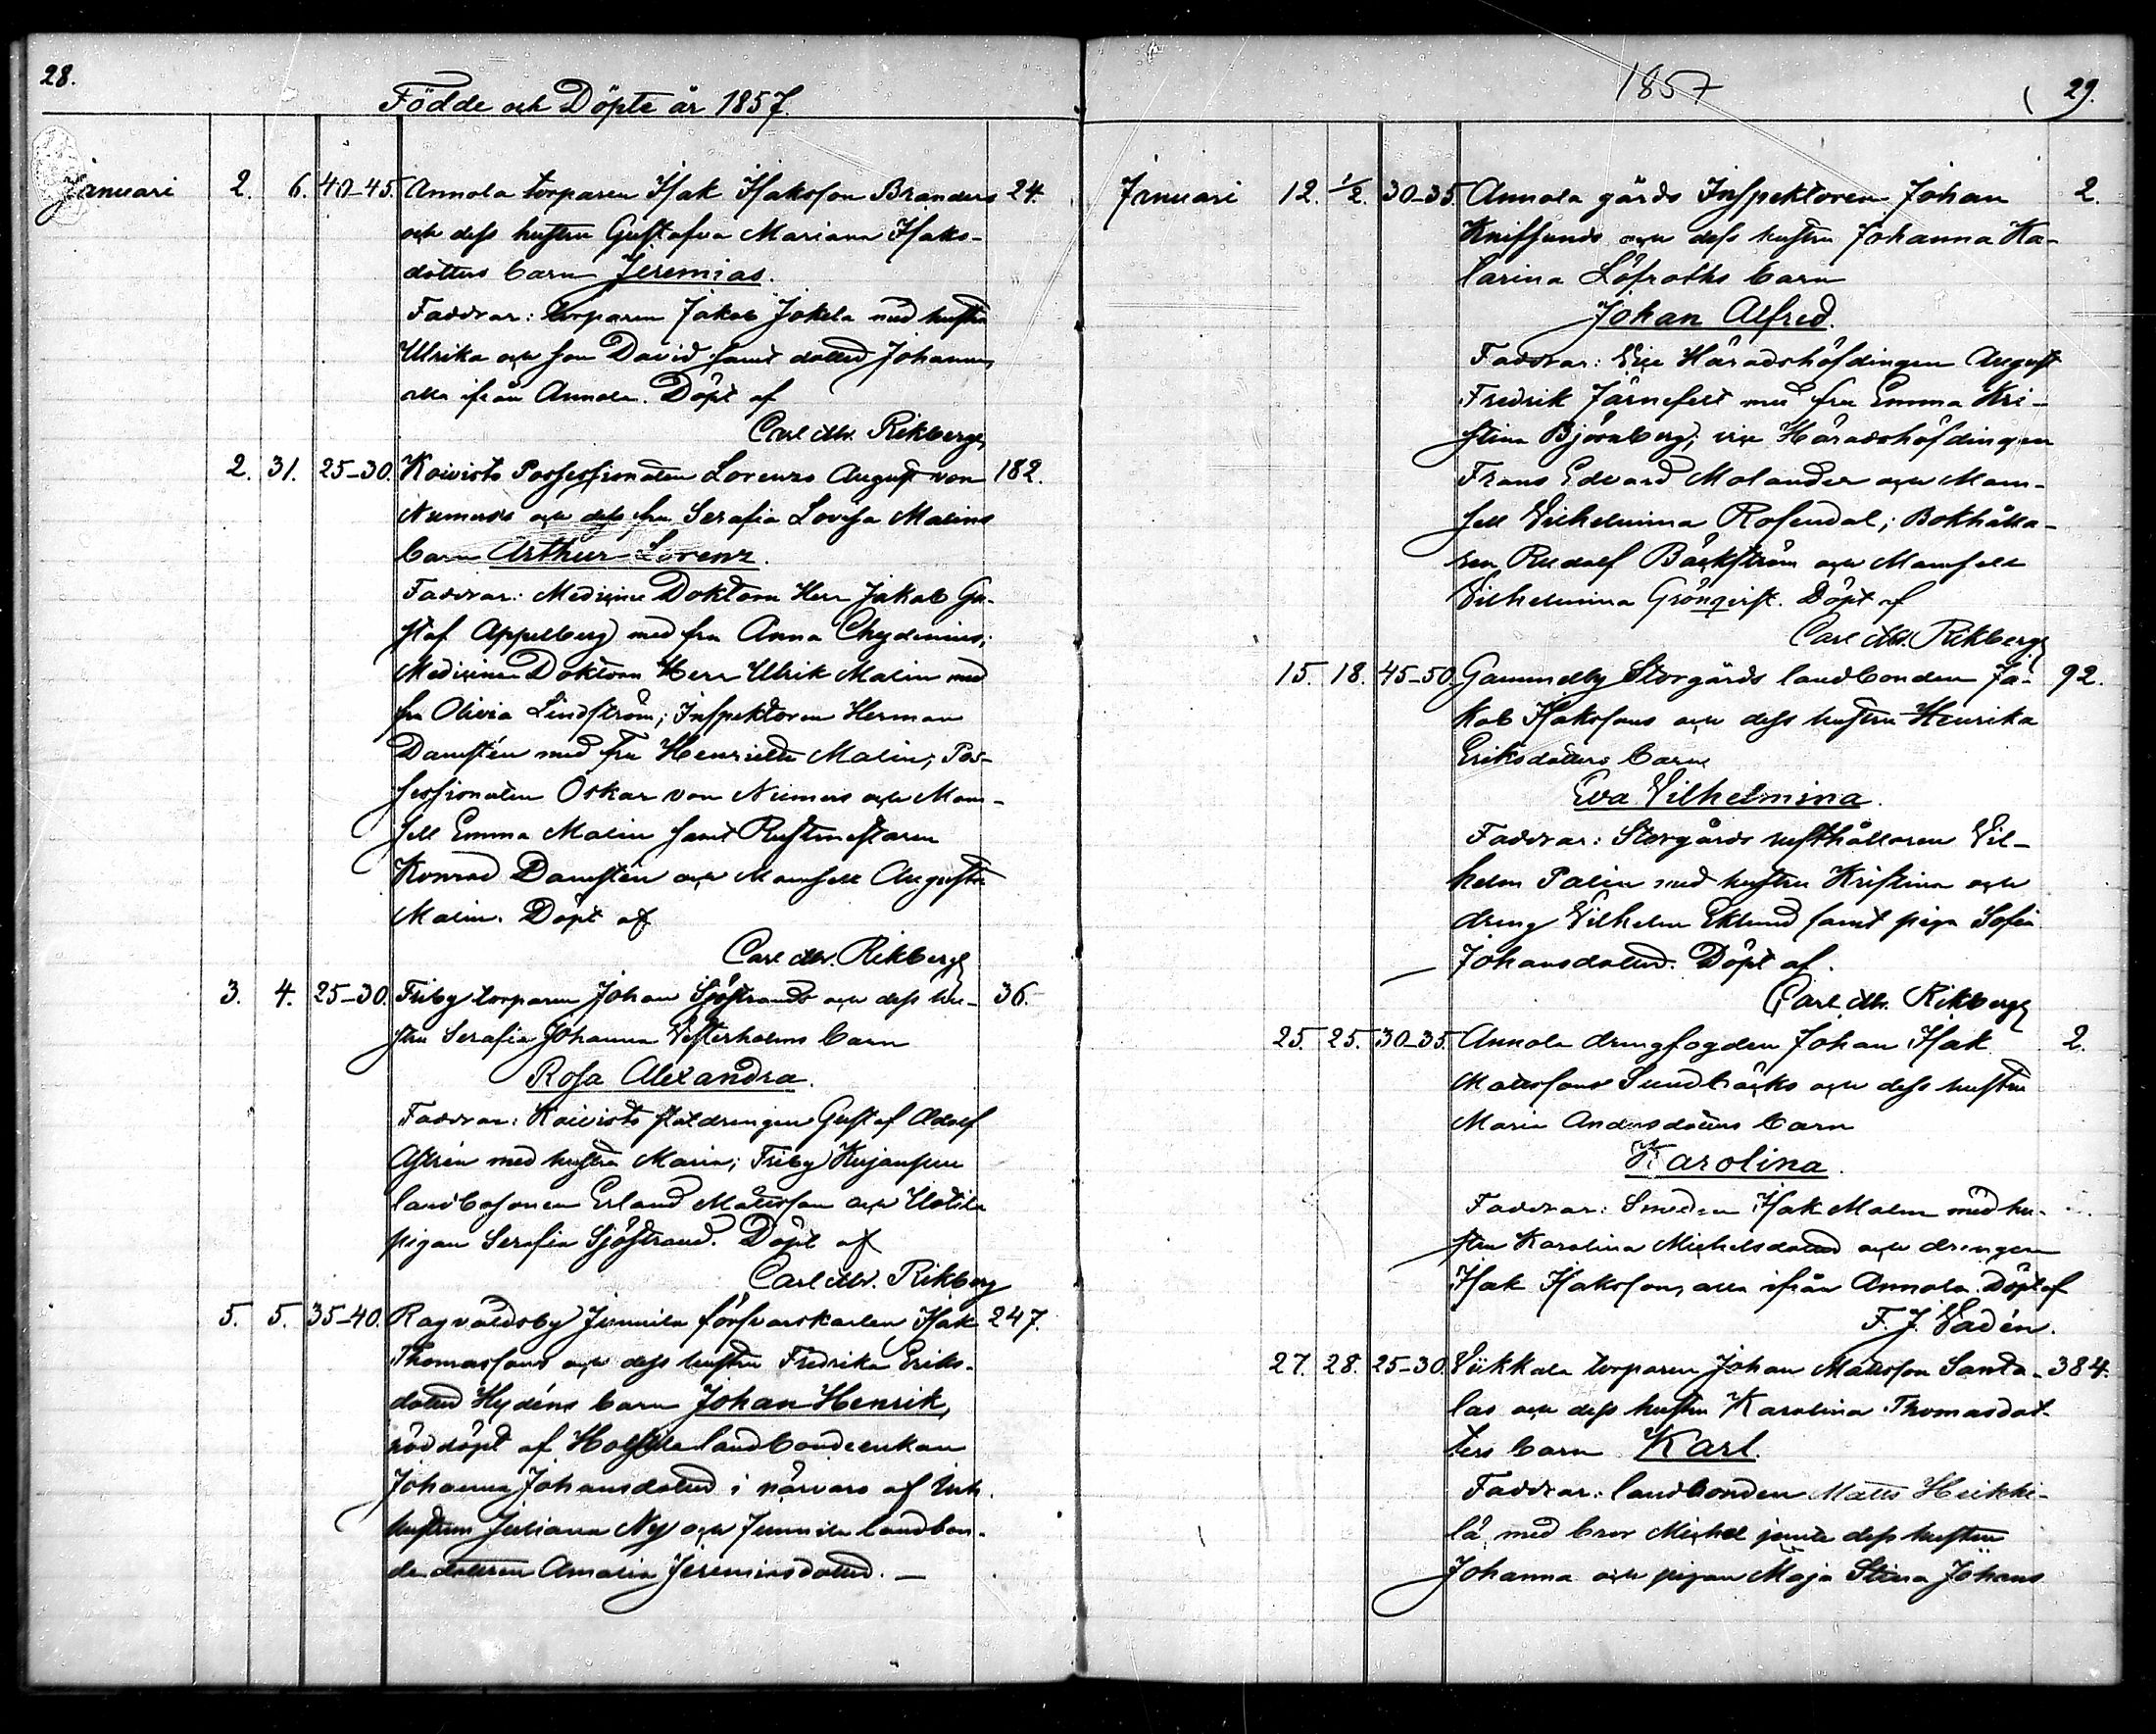 28.
Födde och Döpte år 1857.
Januari 2. 6. 40-45. Annola torparen Isak Isaksson Branders 24.
och dess hustru Gustafva Mariana Isaks-
dotters barn Jeremias.
Faddrar: torparen Jakob Jokela med hustru
Ulrika och son David samt dotter Johanna,
alla ifrån Annola. Döpt af
Carl Mr. Rikberg
2. 31. 25-30. Koivisto Possessionaten Lorenzo August von 182.
Numers och dess fru Serafia Lovisa Malins
barn Arthur Lorenz.
Faddrar: Medicine Doktorn Herr Jakob Gu-
staf Appelberg med fru Anna Chydenius;
Medicine Doktorn Herr Ulrik Malin med
fru Olivia Lindström; Inspektoren Herman
Danstén med fru Henriette Malin; Pos-
sessionaten Oskar von Numers och Mam-
sell Emma Malin samt Rustmestaren
Konrad Danstén och Mamsell Augusta
Malin. Döpt af
Carl Mr. Rikberg
3. 4. 25-30. Friby torparen Johan Sjöstrands och dess hu- 36.
stru Serafia Johanna Vesterholms barn
Rosa Alexandra.
Faddrar: Koivisto statdrengen Gustaf Adolf
Astrén med hustru Maria; Friby Kujanpää
landbosonen Erland Mattsson och Uotila
pigan Serafia Sjöstrand. Döpt af
Carl Mr. Rikberg
5. 5. 35-40. Ragvaldsby Junnila försvarskarlen Isak 247.
Thomassons och dess hustru Fredrika Eriks-
dotter Hydéns barn Johan Henrik,
nöddöpt af landbondeenkan
Johanna Johansdotter i närvaro af
hustrun Juliana Ny och Junnila landbon-
de dottren Amalia Jeremiasdotter. —
1857
29.
Januari 12. 1/2. 30-35. Annola gårds Inspektoren Johan 2.
och dess hustru Johanna Ka-
tarina Löfroths barn
Johan Alfred.
Faddrar: Vice Häradshöfdingen August
Fredrik Järnefelt med fru Emma Kri-
stina Björnberg; vice Häradshöfdingen
Frans Edvard Molander och Mam-
sell Vilhelmina Rosendal; Bokhålla-
ren Rudolf Bäckström och Mamsell
Vilhelmina Grönqvist. Döpt af
Carl Mr. Rikberg
15. 18. 45-50. Gammelby Storgårds landbonden Ja- 92.
kob Isakssons och dess hustru Henrika
Eriksdotters barn
Eva Vilhelmina.
Faddrar: Storgårds rusthållaren Vil-
helm Palin med hustru Kristina och
dreng Vilhelm Eklund samt piga Sofia
Johansdotter. Döpt af.
Carl Mr. Rikberg
25. 25. 30-35. Annola drengfogden Johan Isak 2.
Mattssons Sundbäcks och dess hustru
Maria Andersdotters barn
Karolina.
Faddrar: Smeden Isak Malm med hu-
stru Karolina Michelsdotter och drengen
Isak Isaksson, alla ifrån Annola. Döpt af
F. J. Vadén.
27. 28. 25-30. Viikkala torparen Johan Mattsson Santa- 384.
las och dess hustru Karolina Thomasdot-
ters barn Karl.
Faddrar: landbonden Matts Heikki-
lä, med bror Michel jemte dess hustru
Johanna och pigan Maja Stina Johans